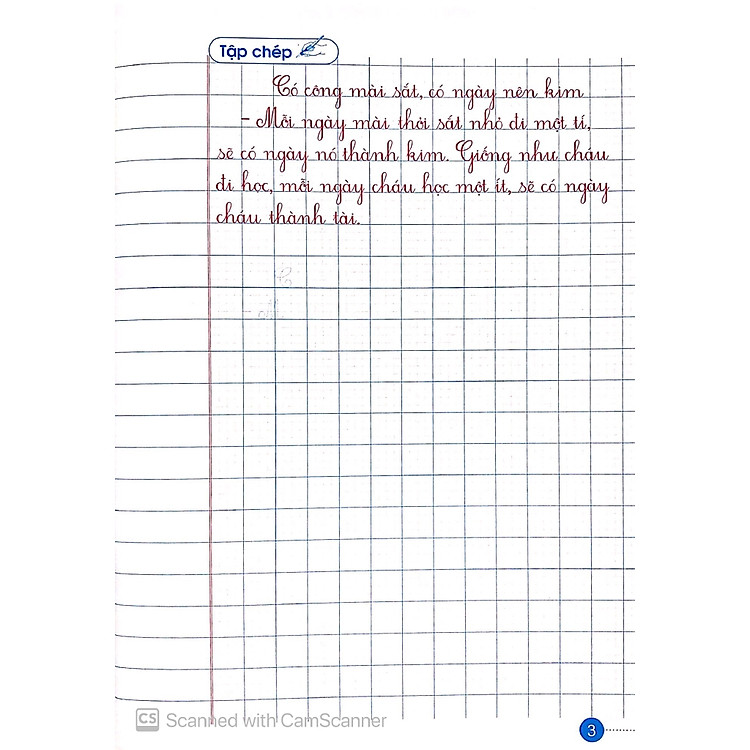 Tập chép
Có công mài sắt, có ngày nên kim
- Mỗi ngày mài thỏi sắt nhỏ đi một tí,
sẽ có ngày nó thành kim. Giống như cháu
đi học, mỗi ngày cháu học một ít, sẽ có ngày
cháu thành tài.
CS Scanned with CamScanner
3